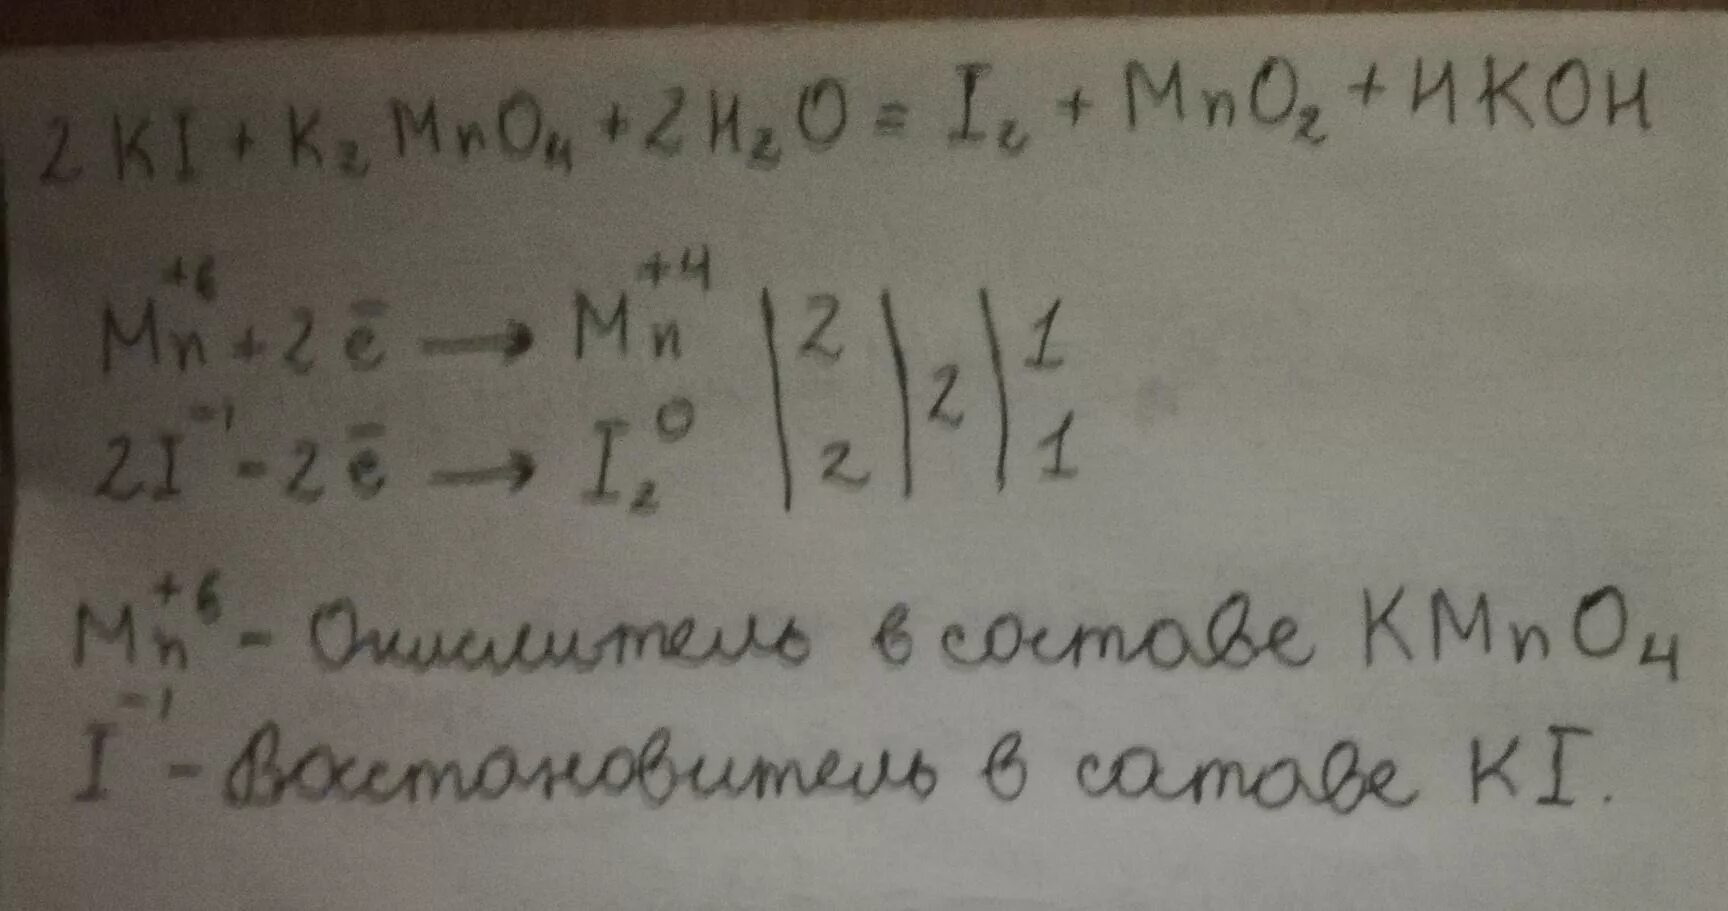 2KI + K₂MnO₄ + 2H₂O = I₂ + MnO₂ + 4KOH
Mn⁺⁶ + 2ē → Mn⁺⁴ | 2 | 2 | 1
2I⁻¹ - 2ē → I₂⁰ | 2 | | 1
Mn⁺⁶ - Окислитель в составе KMnO₄
I⁻¹ - Восстановитель в сотаве KI.